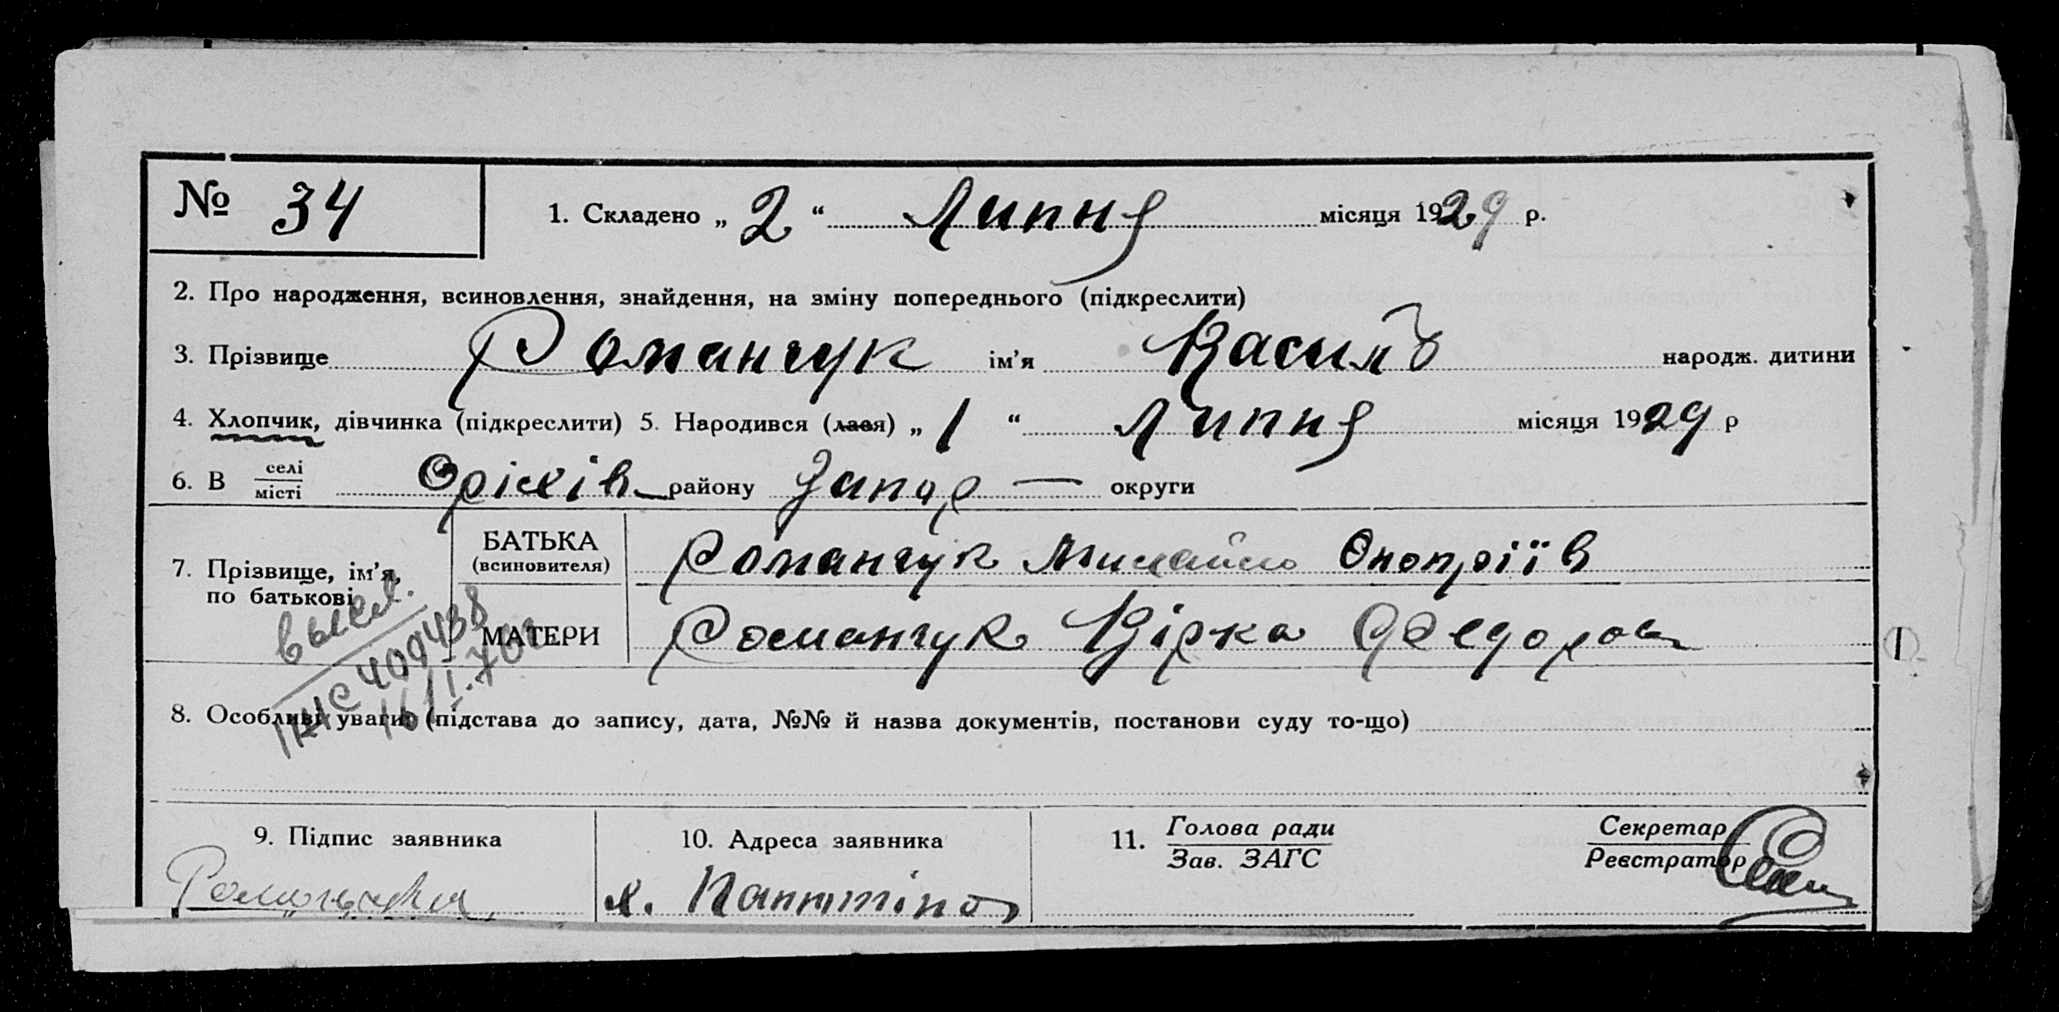 № 34
1. Складено „ 2 “ Липня місяця 1929 р.
2. Про народження, всиновлення, знайдення, на зміну попереднього (підкреслити)
3. Прізвище Романчук ім’я Василь народж. дитини
4. Хлопчик, дівчинка (підкреслити) 5. Народився (лася) „ 1 “ Липня місяця 1929 р
6. В селі/місті Оріхів району Запор — округи
7. Прізвище, ім’я, по батькові
БАТЬКА (всиновителя) Романчук Михайло Онопріїв
МАТЕРИ Романчук Вірка Федоров
8. Особливі уваги (підстава до запису, дата, №№ й назва документів, постанови суду то-що)
9. Підпис заявника
10. Адреса заявника
х.
11. Голова ради / Зав. ЗАГС
Секретар / Реєстратор